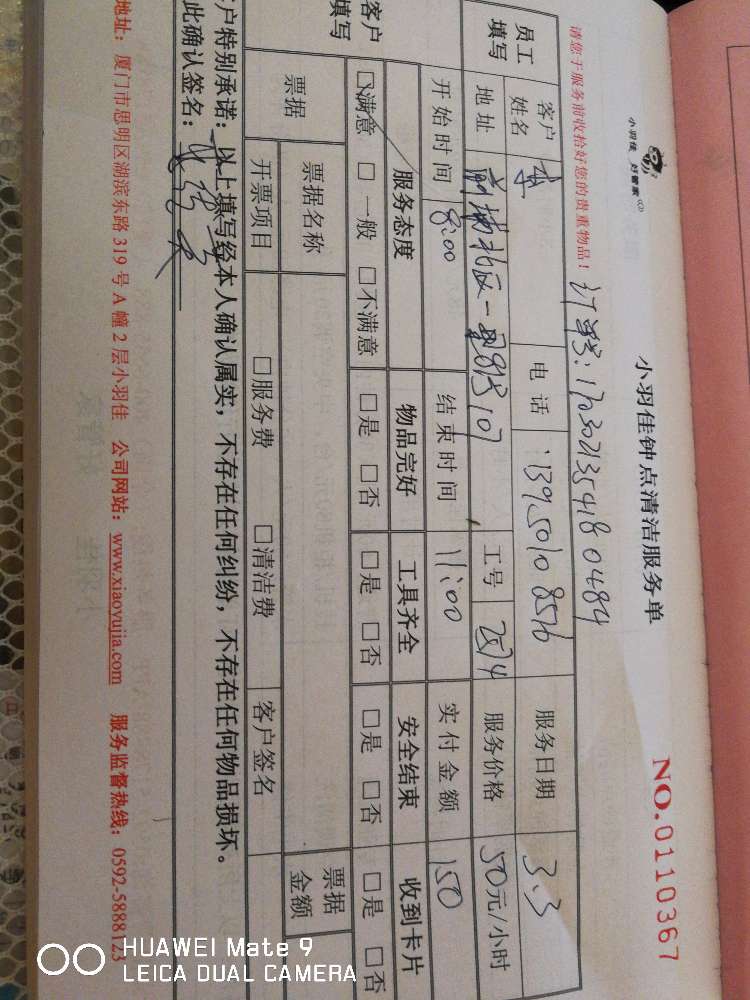 小羽佳 好管家
小羽佳钟点清洁服务单
NO.0110367
请您于服务前收拾好您的贵重物品！
订单号：1703021354180484
员工填写 客户姓名 李 电话 13950108516 服务日期 3.3
地址 前埔北区一里 107 工号 2574 服务价格 50元/小时
开始时间 8:00 结束时间 11:00 实付金额 150
客户填写 服务态度 物品完好 工具齐全 安全结束 收到卡片
☑满意 □一般 □不满意 □是 □否 □是 □否 □是 □否 □是 □否
票据 票据名称 票据金额
开票项目 □服务费 □清洁费 客户签名
户特别承诺：以上填写经本人确认属实，不存在任何纠纷，不存在任何物品损坏。
此确认签名：
地址：厦门市思明区湖滨东路 319 号 A 幢 2 层小羽佳 公司网站：www.xiaoyujia.com 服务监督热线：0592-5888123
HUAWEI Mate 9
LEICA DUAL CAMERA